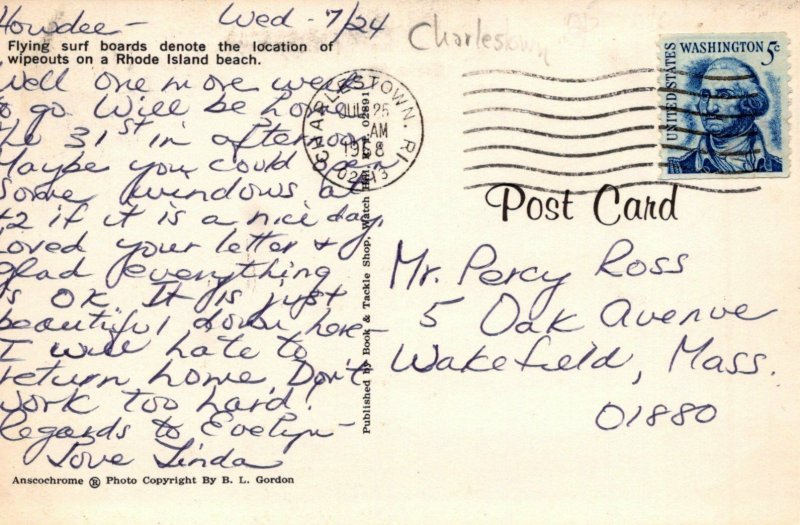 Howdee – Wed – 7/24
Flying surf boards denote the location of
wipeouts on a Rhode Island beach.
Well one more week
to go Will be home
the 31st in afternoon
Maybe you could open
some windows at
if it is a nice day.
Loved your letter &
glad everything
is OK It is just
beautiful down here –
I will hate to
return home. Don't
work too hard!
Regards to Evelyn –
Love Linda
Anscochrome ® Photo Copyright By B. L. Gordon
Published by Book & Tackle Shop, Watch Hill, R.I. 02891
Charlestown
CHARLESTOWN, RI
JUL 25
AM
1968
02813
UNITED STATES
WASHINGTON 5c
Post Card
Mr. Percy Ross
5 Oak Avenue
Wakefield, Mass.
01880